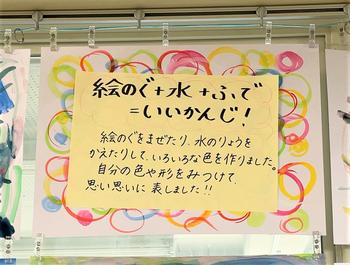 絵のぐ+水+ふで
=いいかんじ!
絵のぐをまぜたり、水のりょうを
かえたりして、いろいろな色を作りました。
自分の色や形をみつけて、
思い思いに表しました!!